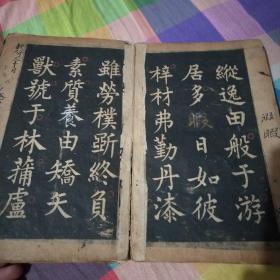 縱逸由般于游
居多暇日如彼
梓材弗勤丹漆
雖勞樸斲終負
素質養由矯矢
獸號于林蒲盧
暇